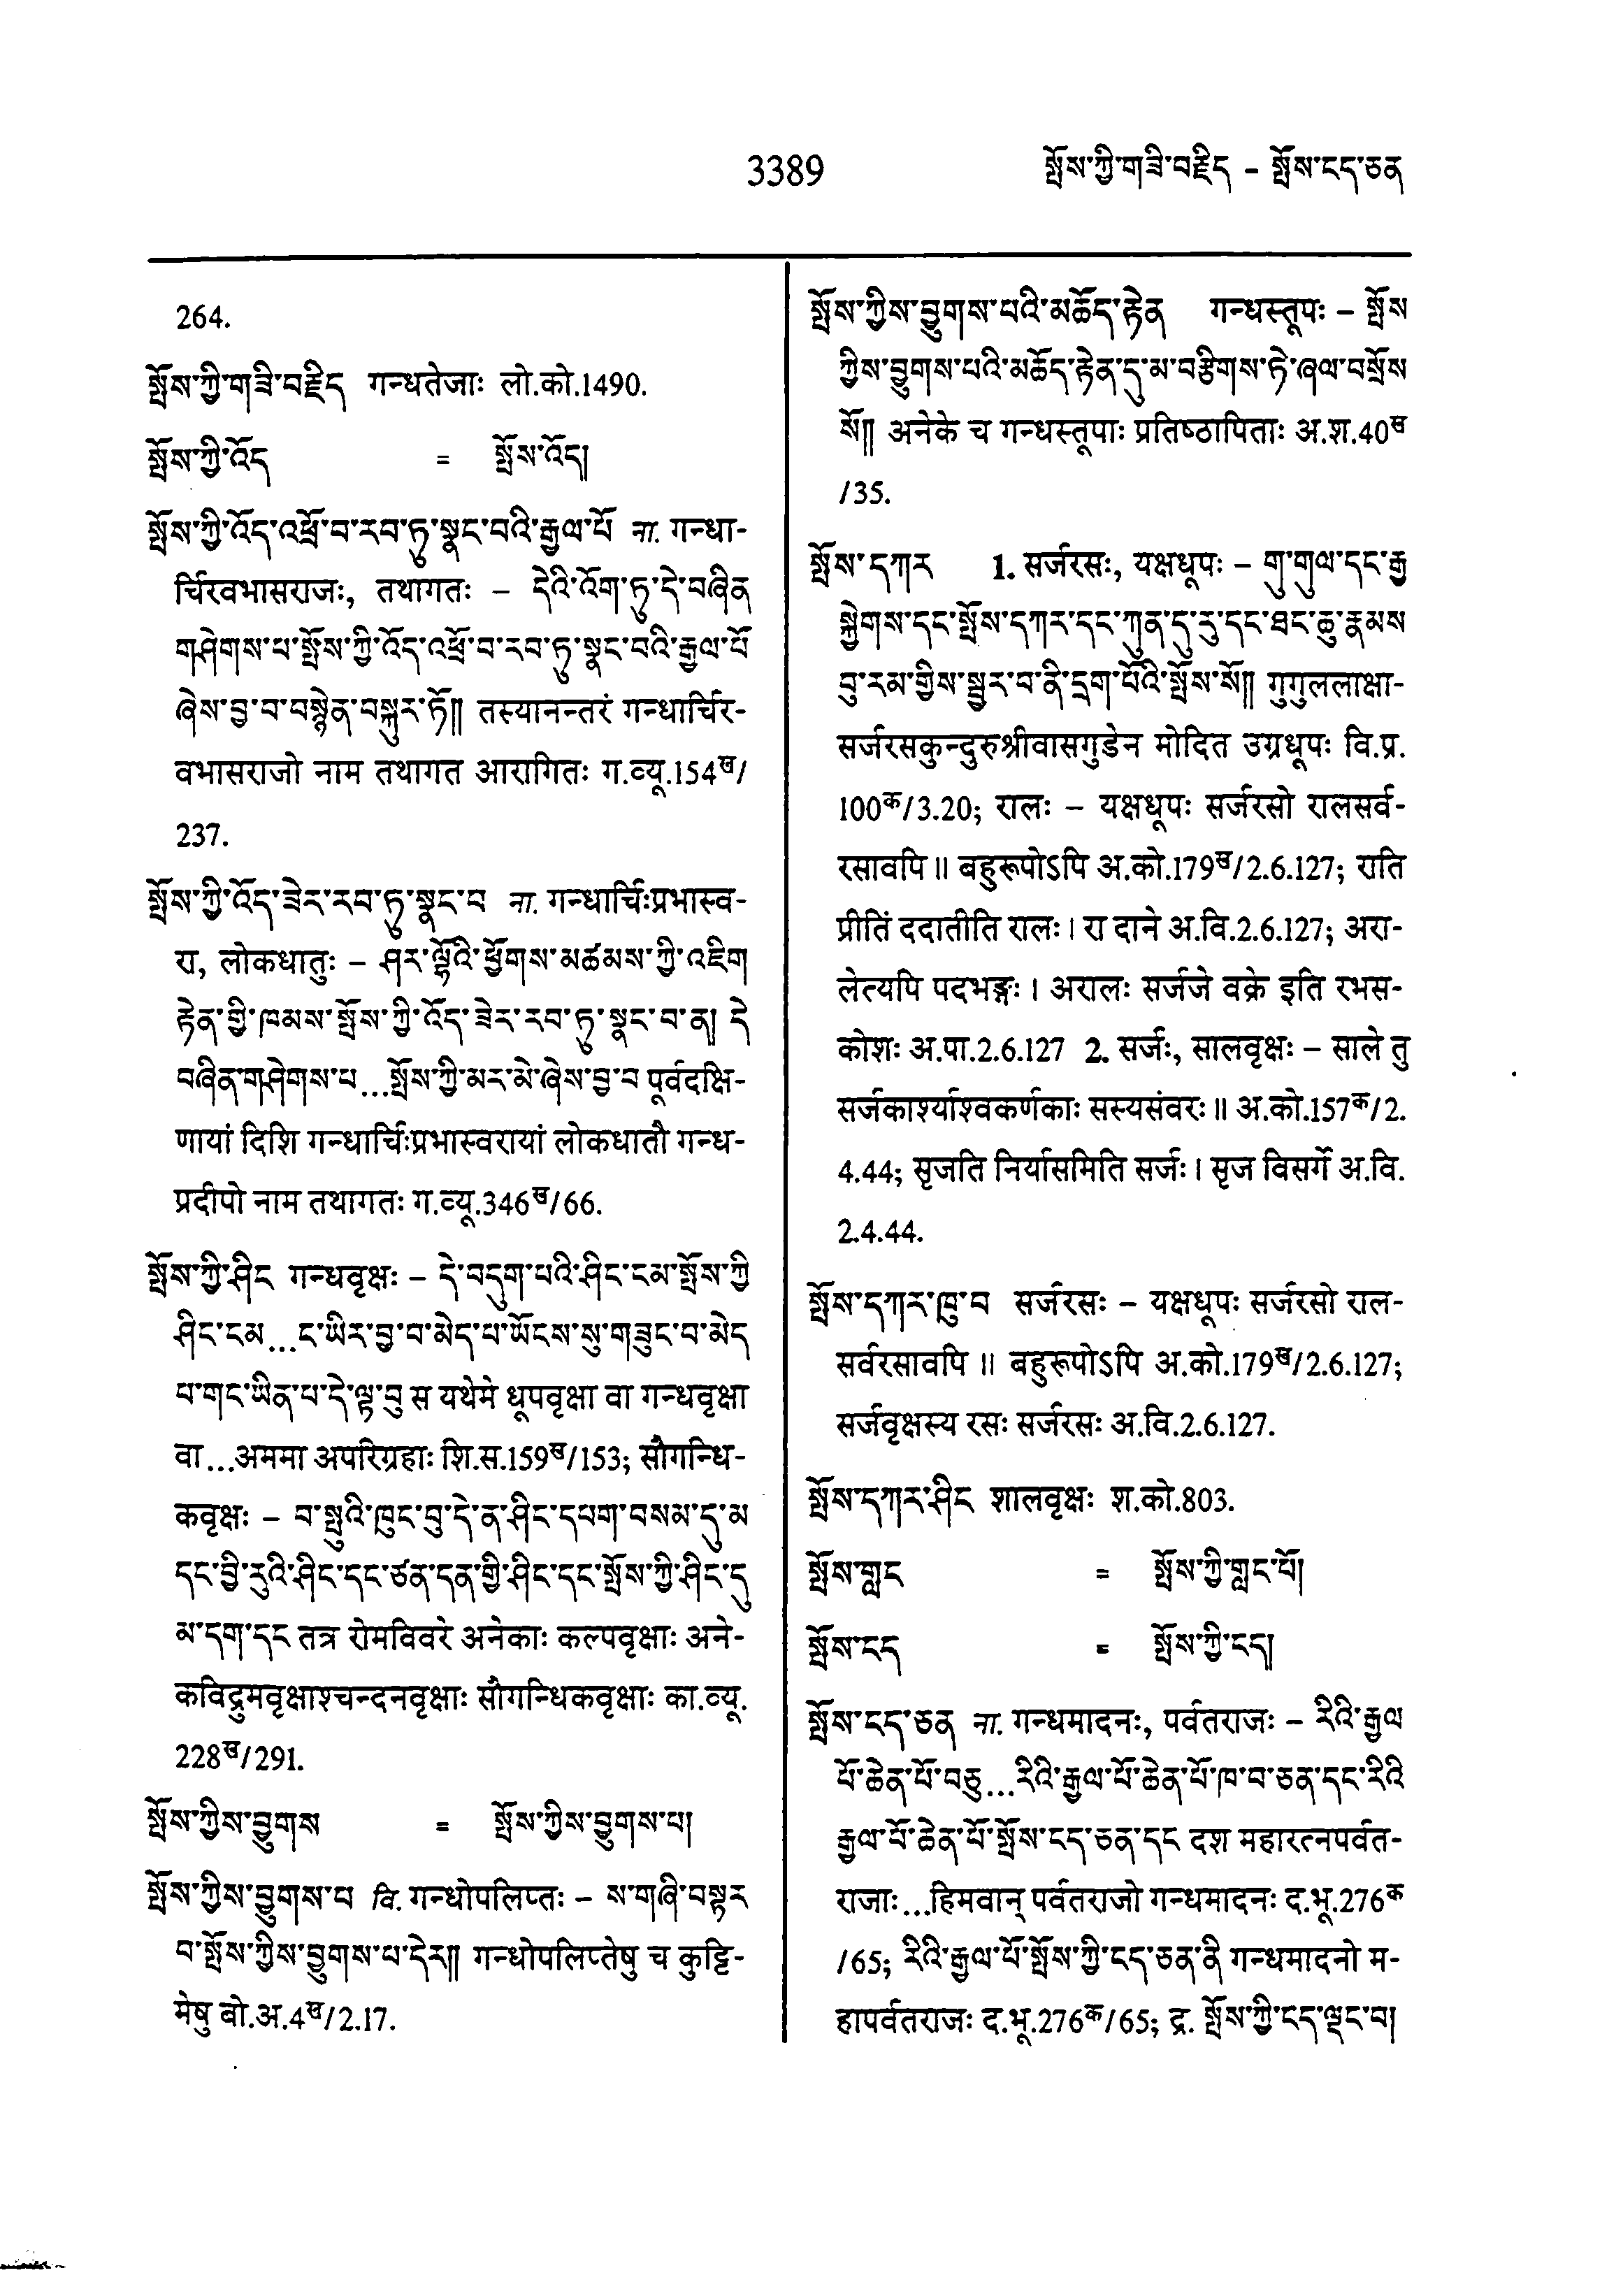 3389
སྤོས་ཀྱི་གཟི་བརྗིད – སྤོས་ངད་ཅན
264.
སྤོས་ཀྱི་གཟི་བརྗིད गन्धतेजाः लो.को.1490.
སྤོས་ཀྱི་འོད = སྤོས་འོད།
སྤོས་ཀྱི་འོད་འཕྲོ་བ་རབ་ཏུ་སྣང་བའི་རྒྱལ་པོ ना. गन्धा-
र्चिरवभासराजः, तथागतः – དེའི་འོག་ཏུ་དེ་བཞིན
གཤེགས་པ་སྤོས་ཀྱི་འོད་འཕྲོ་བ་རབ་ཏུ་སྣང་བའི་རྒྱལ་པོ
ཞེས་བྱ་བ་བསྙེན་བསྐུར་ཏོ།། तस्यानन्तरं गन्धार्चिर-
वभासराजो नाम तथागत आरागितः ग.व्यू.154ख/
237.
སྤོས་ཀྱི་འོད་ཟེར་རབ་ཏུ་སྣང་བ ना. गन्धार्चिःप्रभास्व-
रा, लोकधातुः – ཤར་ལྷོའི་ཕྱོགས་མཚམས་ཀྱི་འཇིག
རྟེན་གྱི་ཁམས་སྤོས་ཀྱི་འོད་ཟེར་རབ་ཏུ་སྣང་བ་ན། དེ
བཞིན་གཤེགས་པ...སྤོས་ཀྱི་མར་མེ་ཞེས་བྱ་བ पूर्वदक्षि-
णायां दिशि गन्धार्चिःप्रभास्वरायां लोकधातौ गन्ध-
प्रदीपो नाम तथागतः ग.व्यू.346ख/66.
སྤོས་ཀྱི་ཤིང गन्धवृक्षः – དེ་བདུག་པའི་ཤིང་ངམ་སྤོས་ཀྱི
ཤིང་ངམ...ང་ཡིར་བྱ་བ་མེད་པ་ཡོངས་སུ་གཟུང་བ་མེད
པ་གང་ཡིན་པ་དེ་ལྟ་བུ स यथेमे धूपवृक्षा वा गन्धवृक्षा
वा...अममा अपरिग्रहाः शि.स.159ख/153; सौगन्धि-
कवृक्षः – བ་སྤུའི་ཁུང་བུ་དེ་ན་ཤིང་དཔག་བསམ་དུ་མ
དང་བྱི་རུའི་ཤིང་དང་ཙན་དན་གྱི་ཤིང་དང་སྤོས་ཀྱི་ཤིང་དུ
མ་དག་དང तत्र रोमविवरे अनेकाः कल्पवृक्षाः अने-
कविद्रुमवृक्षाश्चन्दनवृक्षाः सौगन्धिकवृक्षाः का.व्यू.
228ख/291.
སྤོས་ཀྱིས་བྱུགས = སྤོས་ཀྱིས་བྱུགས་པ།
སྤོས་ཀྱིས་བྱུགས་པ वि. गन्धोपलिप्तः – ས་གཞི་བསྟར
བ་སྤོས་ཀྱིས་བྱུགས་པ་དེར།། गन्धोपलिप्तेषु च कुट्टि-
मेषु बो.अ.4ख/2.17.
སྤོས་ཀྱིས་བྱུགས་པའི་མཆོད་རྟེན गन्धस्तूपः – སྤོས
ཀྱིས་བྱུགས་པའི་མཆོད་རྟེན་དུ་མ་བརྩིགས་ཏེ་ཞལ་བསྲོས
སོ།། अनेके च गन्धस्तूपाः प्रतिष्ठापिताः अ.श.40ख
/35.
སྤོས་དཀར 1. सर्जरसः, यक्षधूपः – གུ་གུལ་དང་རྒྱ
སྐྱེགས་དང་སྤོས་དཀར་དང་ཀུན་དུ་རུ་དང་ཐང་ཆུ་རྣམས
བུ་རམ་གྱིས་སྦྱར་བ་ནི་དྲག་པོའི་སྤོས་སོ།། गुगुललाक्षा-
सर्जरसकुन्दुरुश्रीवासगुडेन मोदित उग्रधूपः वि.प्र.
100क/3.20; रालः – यक्षधूपः सर्जरसो रालसर्व-
रसावपि ॥ बहुरूपोऽपि अ.को.179ख/2.6.127; राति
प्रीतिं ददातीति रालः । रा दाने अ.वि.2.6.127; अरा-
लेत्यपि पदभङ्गः । अरालः सर्जजे वक्रे इति रभस-
कोशः अ.पा.2.6.127 2. सर्जः, सालवृक्षः – साले तु
सर्जकार्श्याश्वकर्णकाः सस्यसंवरः ॥ अ.को.157क/2.
4.44; सृजति निर्यासमिति सर्जः । सृज विसर्गे अ.वि.
2.4.44.
སྤོས་དཀར་ཁུ་བ सर्जरसः – यक्षधूपः सर्जरसो राल-
सर्वरसावपि ॥ बहुरूपोऽपि अ.को.179ख/2.6.127;
सर्जवृक्षस्य रसः सर्जरसः अ.वि.2.6.127.
སྤོས་དཀར་ཤིང शालवृक्षः श.को.803.
སྤོས་གླང = སྤོས་ཀྱི་གླང་པོ།
སྤོས་ངད = སྤོས་ཀྱི་ངད།
སྤོས་ངད་ཅན ना. गन्धमादनः, पर्वतराजः – རིའི་རྒྱལ
པོ་ཆེན་པོ་བཅུ...རིའི་རྒྱལ་པོ་ཆེན་པོ་ཁ་བ་ཅན་དང་རིའི
རྒྱལ་པོ་ཆེན་པོ་སྤོས་ངད་ཅན་དང दश महारत्नपर्वत-
राजाः...हिमवान् पर्वतराजो गन्धमादनः द.भू.276क
/65; རིའི་རྒྱལ་པོ་སྤོས་ཀྱི་ངད་ཅན་ནི गन्धमादनो म-
हापर्वतराजः द.भू.276क/65; द्र. སྤོས་ཀྱི་ངད་ལྡང་བ།